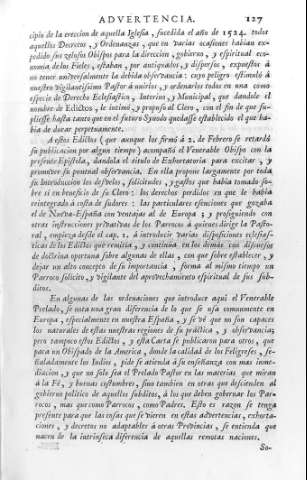 ADVERTENCIA. 127
cipio de la ereccion de aquella Iglesia, sucedida el año de 1524. todos
aquellos Decretos, y Ordenanzas, que en varias ocasiones habian ex-
pedido sus zelosos Obispos para la direccion, gobierno, y espiritual eco-
nomia de los Fieles, estaban, por antiquados, y dispersos, expuestos à
no tener universalmente la debida observancia: cuyo peligro estimuló à
nuestro vigilantissimo Pastor à unirlos, y ordenarlos todos en una como
especie de Derecho Eclesiastico, Interior, y Municipal, que dandole el
nombre de Edictos, le intimó, y propuso al Clero, con el fin de que su-
pliesse hasta tanto que en el futuro Synodo quedasse establecido el que ha-
bia de durar perpetuamente.
A estos Edictos (que aunque los firmó à 2. de Febrero se retardó
su publicacion por algun tiempo) acompañó el Venerable Obispo con la
presente Epistola, dandola el titulo de Exhortatoria para excitar, y
promover su puntual observancia. En ella propone largamente por toda
su Introduccion los desvelos, solicitudes, y gastos que habia tomado so-
bre sì en beneficio de su Clero: los derechos perdidos en que le habia
reintegrado à costa de sudores: las particulares esenciones que gozaba
el de Nueva-España con ventajas al de Europa; y prosiguiendo con
otras instrucciones privativas de los Parrocos à quienes dirige la Pasto-
ral, empieza desde el cap. 1. à introducir varias disposiciones eclesias-
ticas de los Edictos que remitia, y continúa en los demás con discursos
de doctrina oportuna sobre algunas de ellas, con que sobre establecer, y
dejar un alto concepto de su importancia, forma al mismo tiempo un
Parroco solicito, y vigilante del aprovechamiento espiritual de sus sub-
ditos.
En algunas de las ordenaciones que introduce aqui el Venerable
Prelado, se nota una gran diferencia de lo que se usa comunmente en
Europa, especialmente en nuestra España, y se vé que no son capaces
los naturales de estas nuestras regiones de su práctica, y observancia;
pero tampoco estos Edictos, y esta Carta se publicaron para otros, que
para un Obispado de la America, donde la calidad de los Feligreses, se-
ñaladamente los Indios, pide se atienda à su enseñanza con mas inme-
diacion, y que no solo sea el Prelado Pastor en las materias que miran
à la Fé, y buenas costumbres, sino tambien en otras que descienden al
gobierno politico de aquellos subditos, à los que deben gobernar los Par-
rocos, mas que como Parrocos, como Padres. Esto es razon se tenga
presente para que las cosas que se vieren en estas advertencias, exhorta-
ciones, y decretos no adaptables à otras Provincias, se entienda que
nacen de la intrinseca diferencia de aquellas remotas naciones.
So-